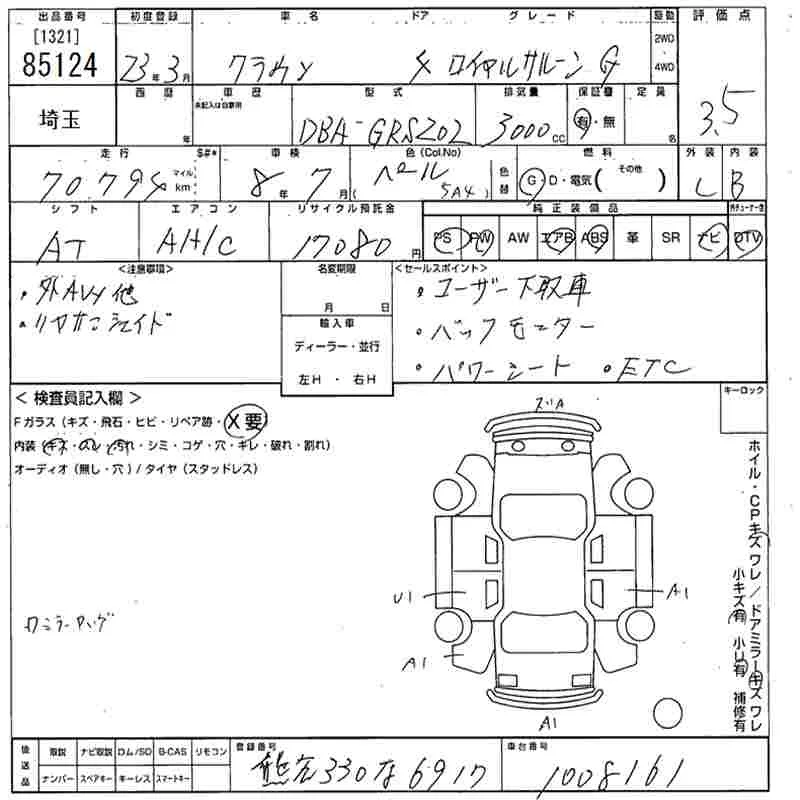 出品番号 初度登録 車名 ドア グレード 駆動 評価点
[1321]
85124 23年3月 クラウン 4 ロイヤルサルーン G 2WD 4WD 3.5
埼玉 西暦 年 車歴 未記入は自家用 型式 DBA-GRS202 排気量 3000cc 保証書 有・無 定員 名
走行 $#* 車検 色(Col.No) 燃料 外装 内装
70,794 マイル km 8年7月 パール (5A4) 色替 G・D・電気( その他 ) C B
シフト エアコン リサイクル預託金 純正装備品
AT AAC 17080円 PS PW AW エアB ABS 革 SR ナビ DTV
<注意事項> 名変期限 <セールスポイント>
・外AVN他 ・ユーザー下取車
・リヤサンシェイド 月 日 ・バックモニター
輸入車
ディーラー・並行 ・パワーシート ・ETC
左H・右H
<検査員記入欄> キーロック
Fガラス(キズ・飛石・ヒビ・リペア跡・X要)
内装(キズ・スレ・汚れ・シミ・コゲ・穴・キレ・破れ・割れ)
オーディオ(無し・穴)/タイヤ(スタッドレス)
ズリA
U1 A1
A1
A1
ホイル・CPキズワレ/ドアミラーキズワレ
小キズ有 小U有 補修有
後送品 取説 ナビ取説 ロム/SD B-CAS リモコン 登録番号 車台番号
ナンバー スペアキー キーレス スマートキー 熊谷330な6917 1008161